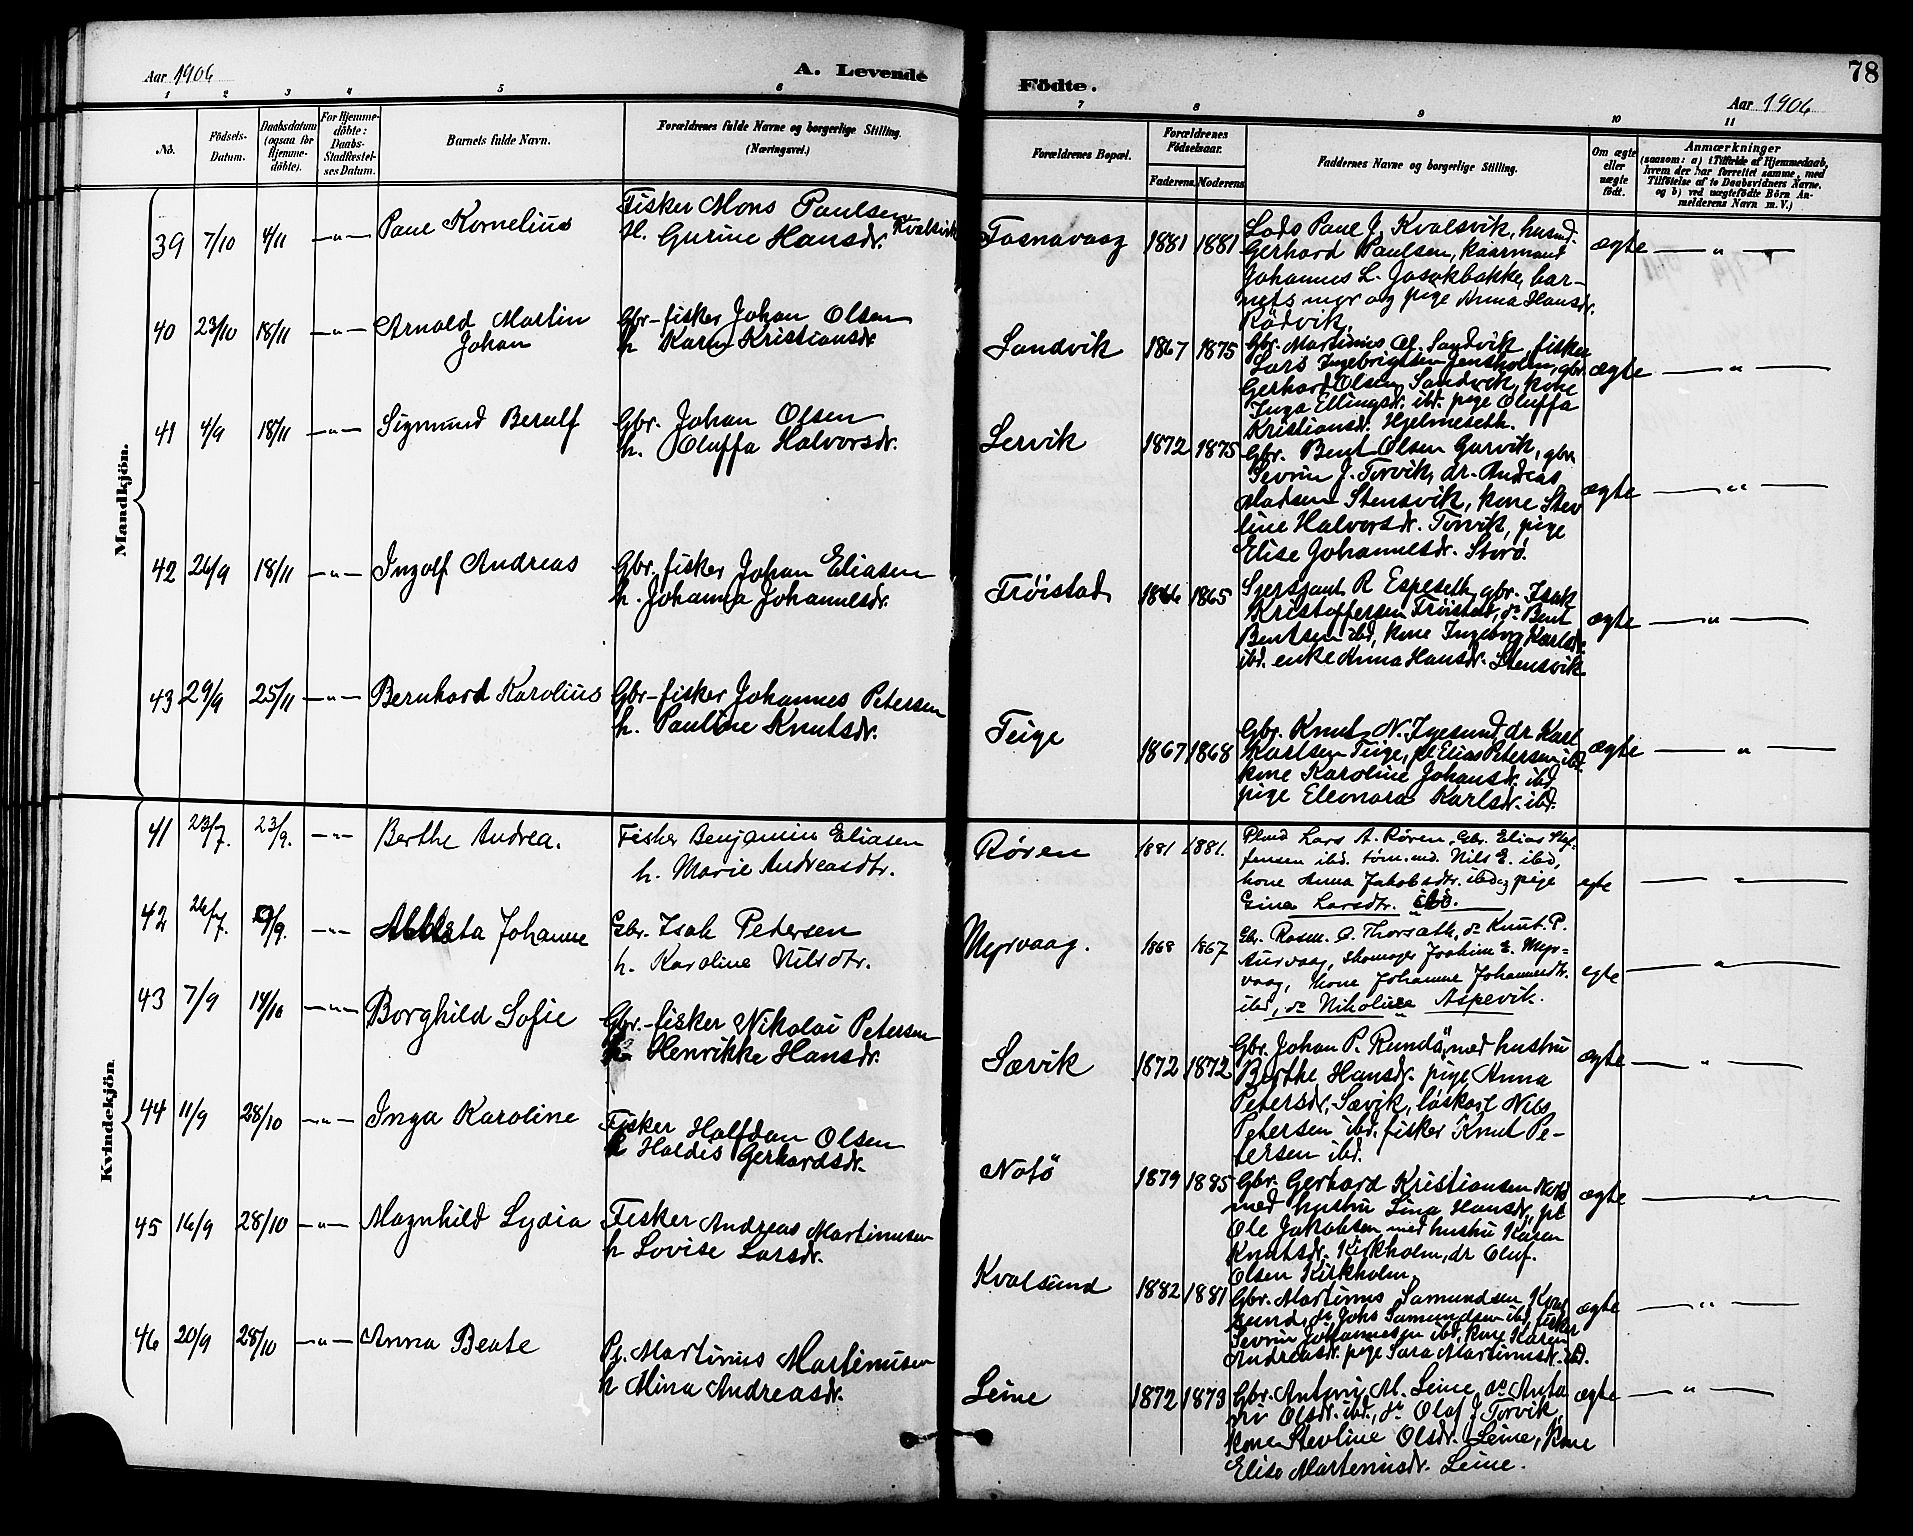 Aar 1906
A. Levende
1 2 3 4 5 6
No.
Födsels-Datum.
Daabsdatum (ogsaa for Hjemmedöbte).
For Hjemmedöbte: Daabs-Stadfæstelses Datum.
Barnets fulde Navn.
Forældrenes fulde Navne og borgerlige Stilling.
(Næringsvei.)
Mandkjön.
39 7/10 4/11 —"— Paul Kornelius Fisker Mons Paulsen Kvalsvik
H. Gurine Hansdr.
40 23/10 18/11 —"— Arnold Martin Gbr-fisker Johan Olsen
Johan h Karen Kristiansdr
41 4/9 18/11 —"— Sigmund Berulf Gbr. Johan Olsen
h. Oluffa Halvorsdr.
42 26/9 18/11 —"— Ingolf Andreas Gbr. fisker Johan Eliasen
h. Johanna Johannesdr.
43 29/9 25/11 —"— Bernhard Karolius Gbr-fisker Johannes Petersen
h. Pauline Knutsdr.
Kvindekjön
41 23/7. 23/9. —"— Berthe Andrea. Fisker Benjamin Eliasen
h. Marie Andreasdtr.
42 26/7. 9/9. —"— Johanne Gbr. Isak Petersen
h. Karoline Nilsdtr.
43 7/9 14/10 —"— Borghild Sofie Gbr.-fisker Nikolai Petersen
h Henrikke Hansdr.
44 11/9 28/10 —"— Inga Karoline Fisker Halfdan Olsen
h Haldis Gerhardsdr.
45 16/9 28/10 —"— Magnhild Lydia Fisker Andreas Martinusen
h Lovise Larsdr.
46 20/9 28/10 —"— Anna Beate Pl. Martinus Martinusen
h Mina Andreasdr.
78
Födte.
Aar 1906
7 8 9 10 11
Forældrenes Bopæl.
Forældrenes Födselsaar.
Faderens. Moderens.
Faddernes Navne og borgerlige Stilling.
Om ægte eller uægte födt.
Anmærkninger
(saasom: a) i Tilfælde af Hjemmedaab,
hvem der har forrettet samme, med
Tilföielse af to Daabsvidners Navne.
og b) ved uægtefödte Börn Anmelderens Navn m. V.)
Fosnavaag 1881 1881 Lods Paul J. Kvalsvik, husmd. ægte — " —
Gerhard Paulsen, kaarmand
Johannes L. Josokbakke, bar-
nets mor og pige Anna Hansdr.
Rødvik.
Sandvik 1867 1875 Gbr. Martinus Ol. Sandvik, fisker ægte — " —
Lars Ingebrigtsen Jensholm, gbr
Gerhard Olsen Sandvik, kone
Inga Ellingsdr. ibd. pige Oluffa
Kristiansdr. Hjelmeseth.
Lervik 1872 1875 Gbr. Bent Olsen Gurvik, gbr. ægte — " —
Sevrin J. Torvik, dr. Andreas
Madsen Stensvik, kone Stev
line Halvorsdr. Torvik, pige
Elise Johannesdr. Storø.
Trøistad 1866 1865 Sjersjant R Espeseth, gbr. Isak ægte — " —
Kristoffersen Trøistad, do Bent
Bentsen ibd, kone Ingeborg Karlsdr.
ibd. enke Anna Hansdr. Stensvik
Teige 1867 1868 Gbr. Knut N. Igesund, dr Karl ægte — " —
Karlsen Teige, pl Elias Petersen ibd.
kone Karoline Johansdr. ibd
pige Eleonora Karlsdr. ibd.
Røren 1881 1881. Plmd Lars A. Røren, Gbr. Elias Stef- egte — " —
fensen ibd. tøm.md. Nils E. ibd,
kone Anna Jakobsdtr. ibd og pige
Gina Larsdtr. ibd.
Myrvaag. 1868 1867 Gbr. Rasm. O. Thorsæth, do Knut P. egte — " —
Aurvaag, skomager Joakim E. Myr-
vaag, kone Johanne Johannesdtr.
ibd, do Nikoline Aspevik.
Sævik 1872 1872 Gbr. Johan P. Rundö, med hustru ægte — " —
Berthe Hansdr. pige Anna
Petersdr, Sævik, løskarl Nils
Petersen ibd, fisker Knut Pe-
tersen ibd.
Notö 1879 1885 Gbr. Gerhard Kristiansen Notö ægte — " —
med hustru Lina Hansdr, pl
Ole Jakobsen med hustru Karen
Knutsdr. Kirkholm, dr Oluf
Olsen Kirkholm.
Kvalsund 1882 1881 Gbr. Martinus Samundsen Kval ægte — " —
sund, do Johs Samundsen ibd, fisker
Sevrin Johannesen ibd, kone Karen
Andreasdr. pige Sara Martinusdr. ibd.
Leine 1872 1873 Gbr. Antoni M. Leine, do Anto ægte — " —
ni Olsdr. ibd., do Olaf J Torvik,
kone Stevline Olsdr. Leine, kone
Elise Martinusdr. Leine.